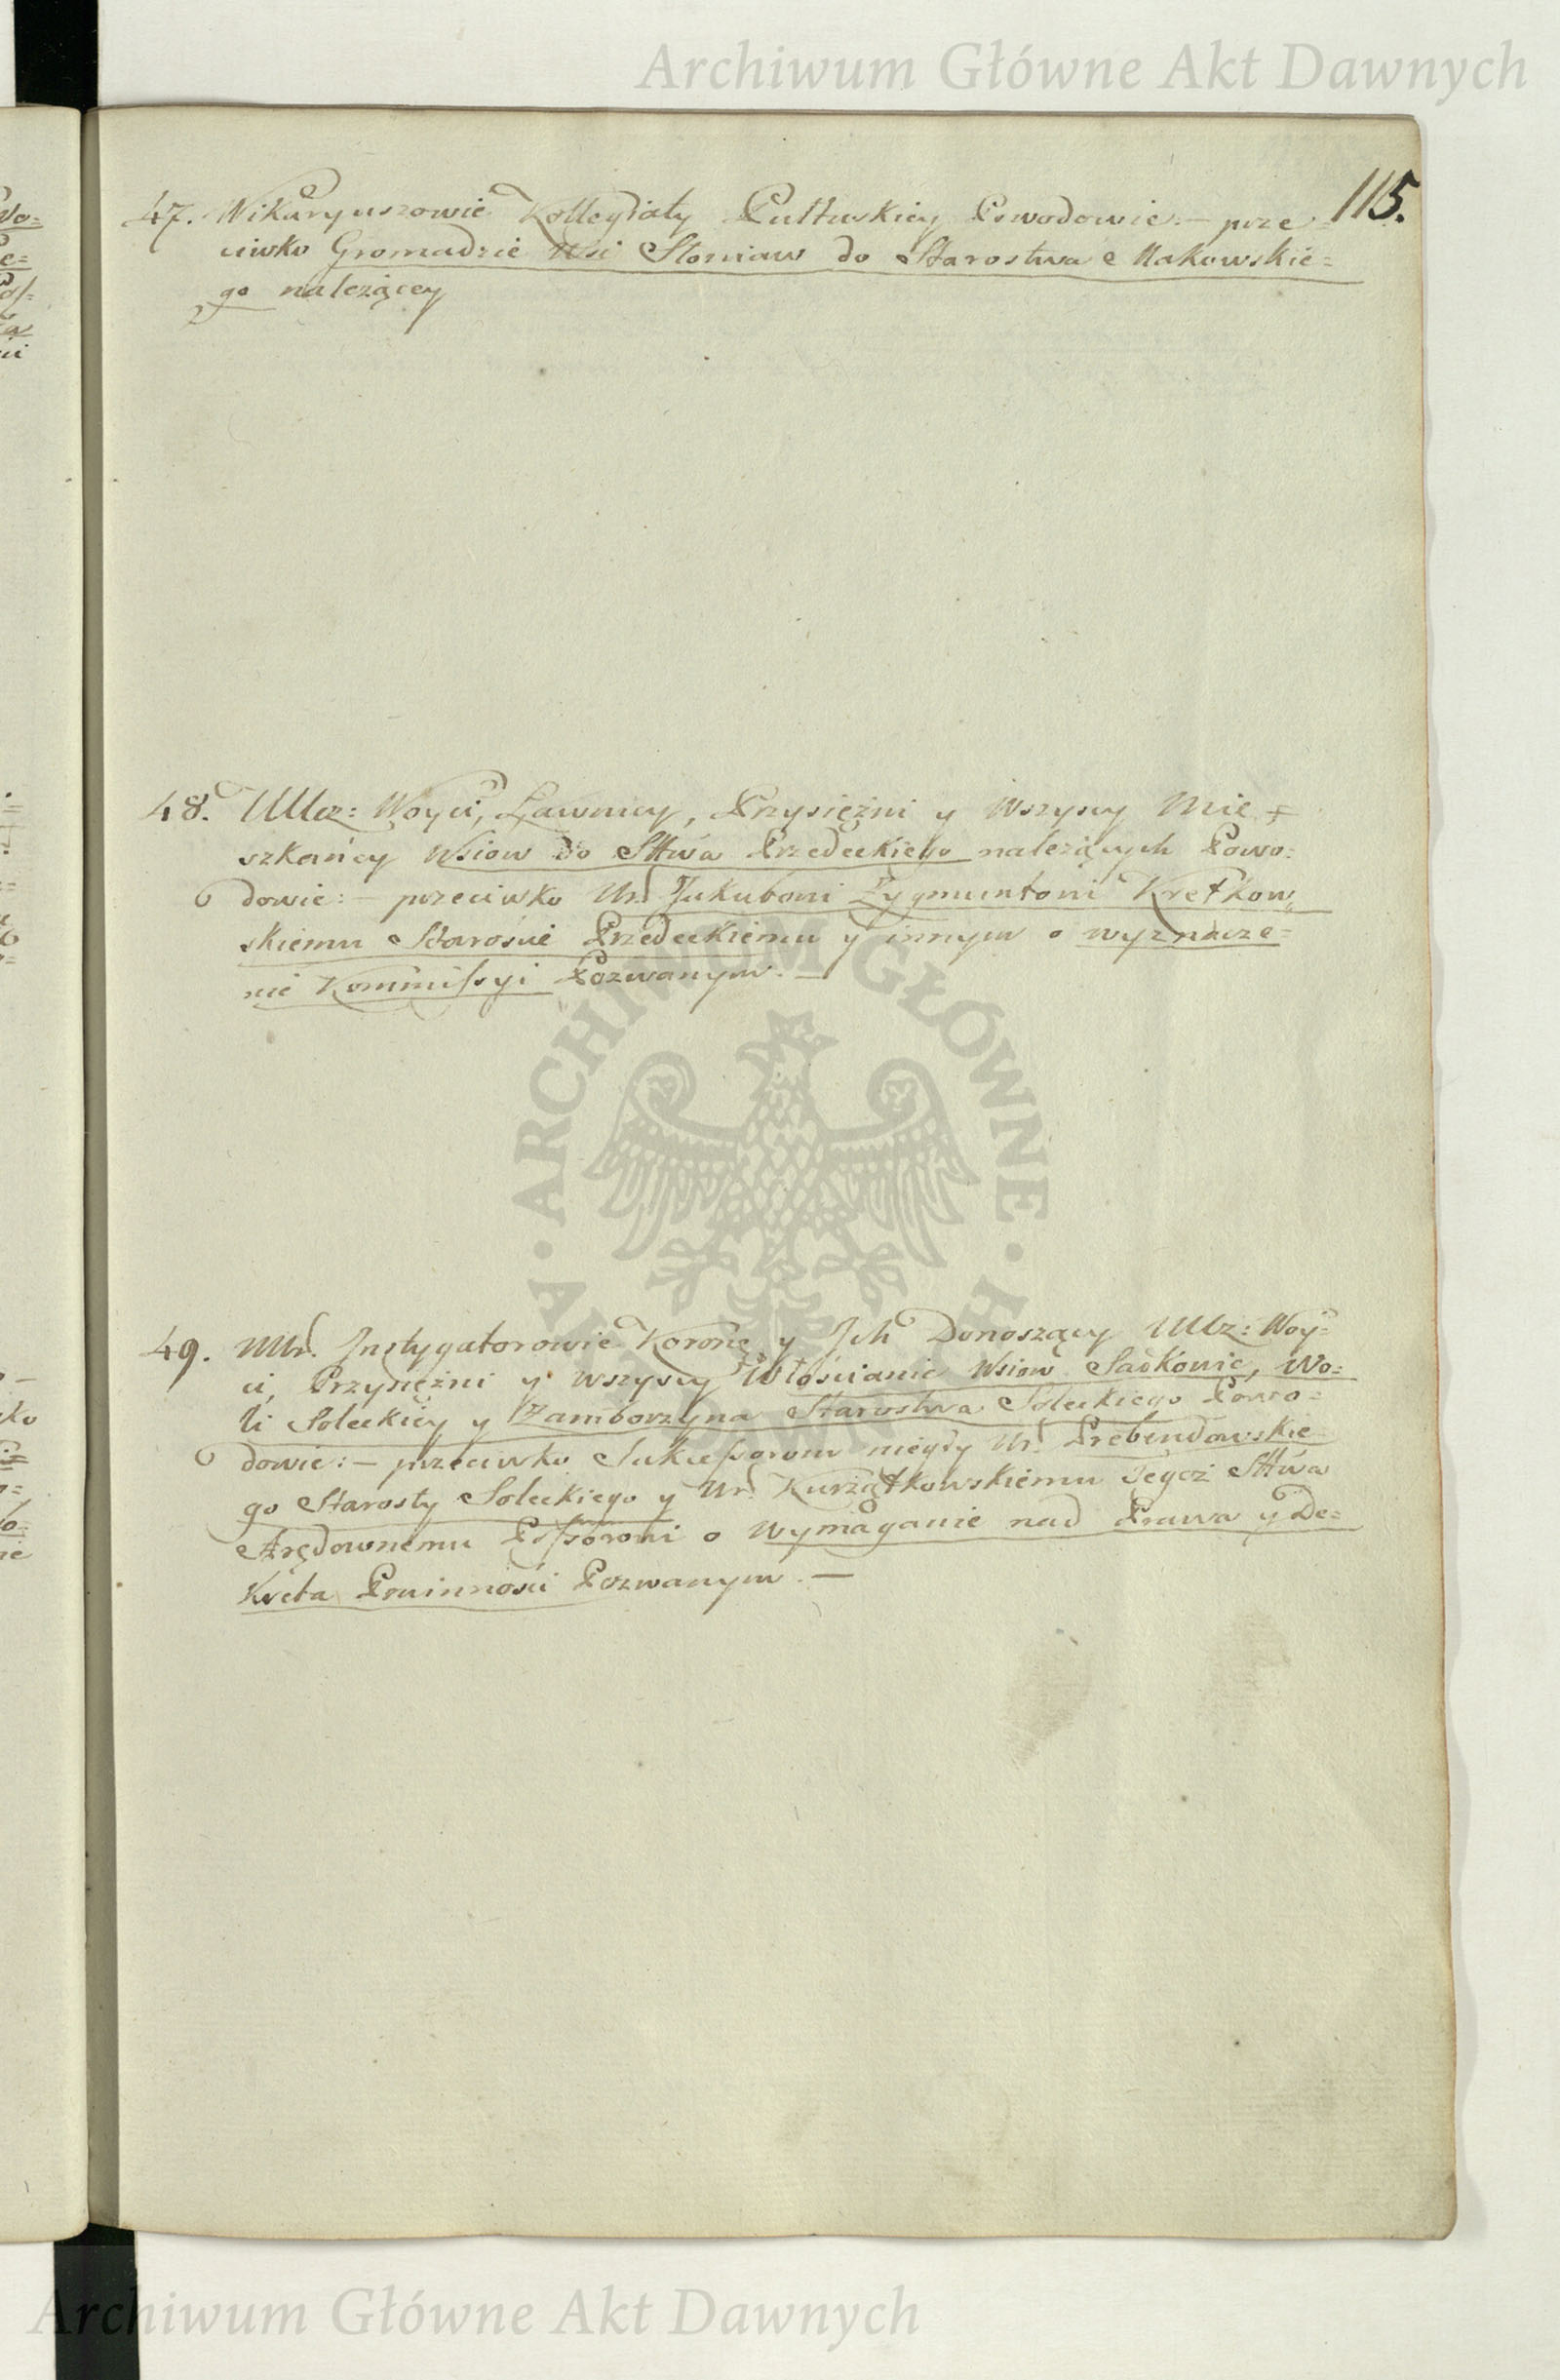 Archiwum Główne Akt Dawnych
115.
47. Wikaryuszowie Kollegiaty Pułtuskiey Powodowie:– prze=
ciwko Gromadzie Wsi Słoniaw do Starostwa Makowskie=
go należącey
48. UUcz: Woyci, Ławnicy, Przysiężni y Wszyscy Mie=
szkańcy Wsiow do Sttwa Przedeckiego należących Powo=
dowie:– przeciwko Ur. Jakubowi Zygmuntowi Kretkow„
skiemu Starośćie Przedeckiemu y innym o wyznacze=
nie Kommissyi Pozwanym. –
49. UUr. Instygatorowie Koronę y Ich Donoszący UUcz: Woy=
ci, Przysiężni y wszyscy Włościanie Wsiow Sadkowic, Wo=
li Soleckiey y Zamborzyna Starostwa Soleckiego Powo=
dowie:– przeciwko Sukcessorom niegdy Ur. Prebendowskie
go Starosty Soleckiego y Ur. Kurzątkowskiemu Tegoż Sttwa
Arędownemu Possorowi o wymaganie nad Prawa y De=
kreta Powinności Pozwanym. –
ARCHIWUM GŁÓWNE AKT DAWNYCH
Archiwum Główne Akt Dawnych